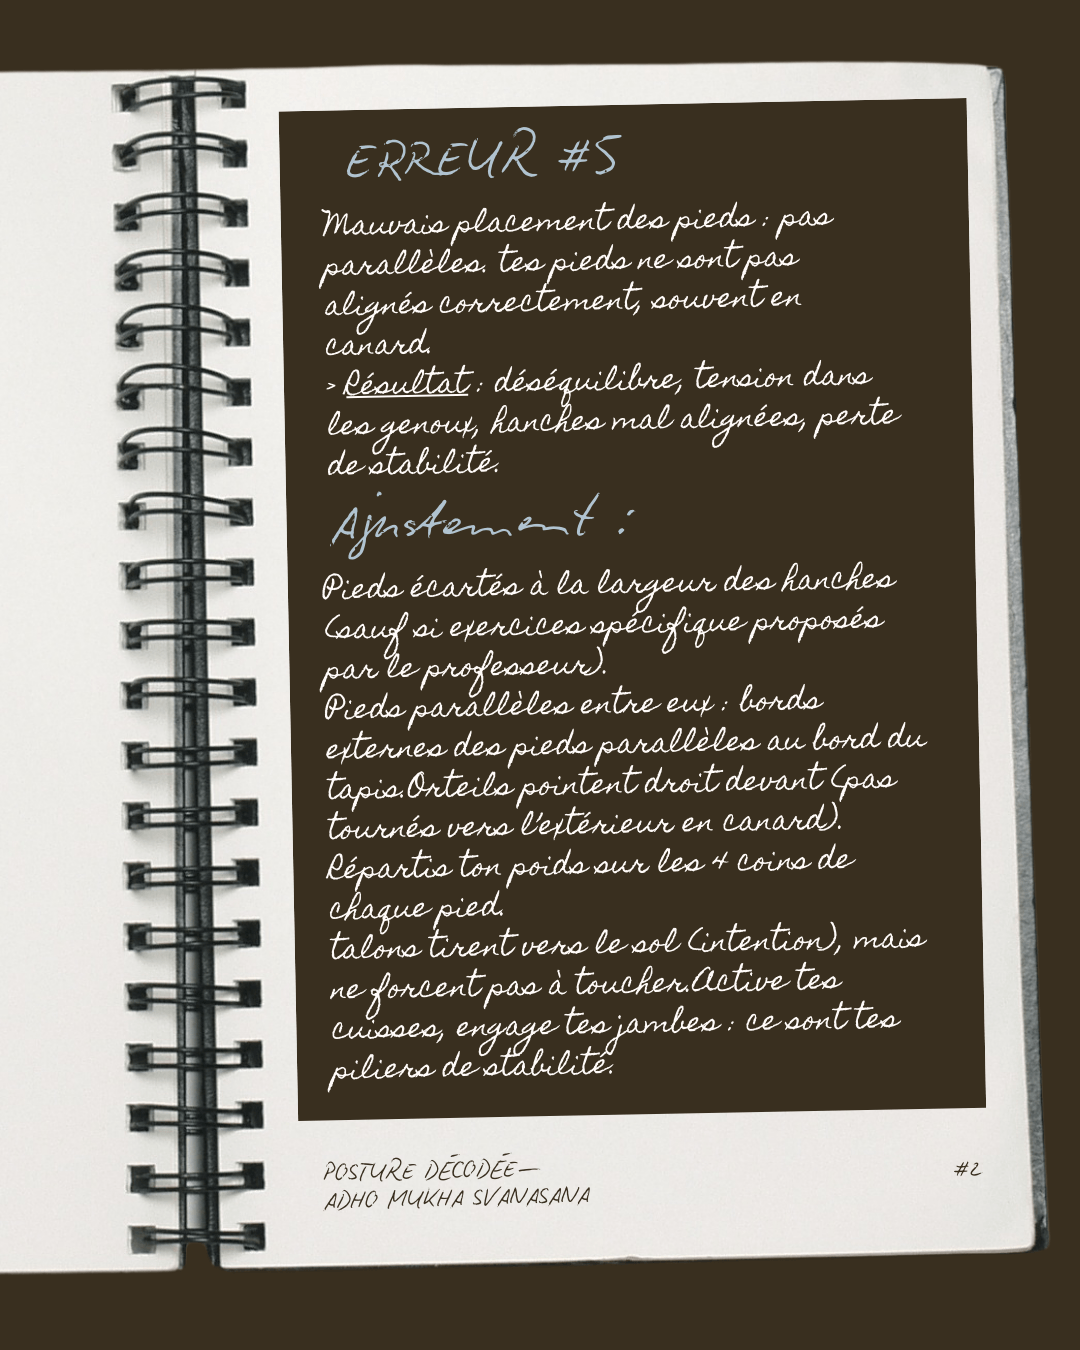 ERREUR #5
Mauvais placement des pieds : pas
parallèles. tes pieds ne sont pas
alignés correctement, souvent en
canard.
> Résultat : déséquilibre, tension dans
les genoux, hanches mal alignées, perte
de stabilité.
Ajustement :
Pieds écartés à la largeur des hanches
(sauf si exercices spécifique proposés
par le professeur).
Pieds parallèles entre eux : bords
externes des pieds parallèles au bord du
tapis.Orteils pointent droit devant (pas
tournés vers l'extérieur en canard).
Répartis ton poids sur les 4 coins de
chaque pied.
talons tirent vers le sol (intention), mais
ne forcent pas à toucher.Active tes
cuisses, engage tes jambes : ce sont tes
piliers de stabilité.
POSTURE DÉCODÉE—
ADHO MUKHA SVANASANA
#2